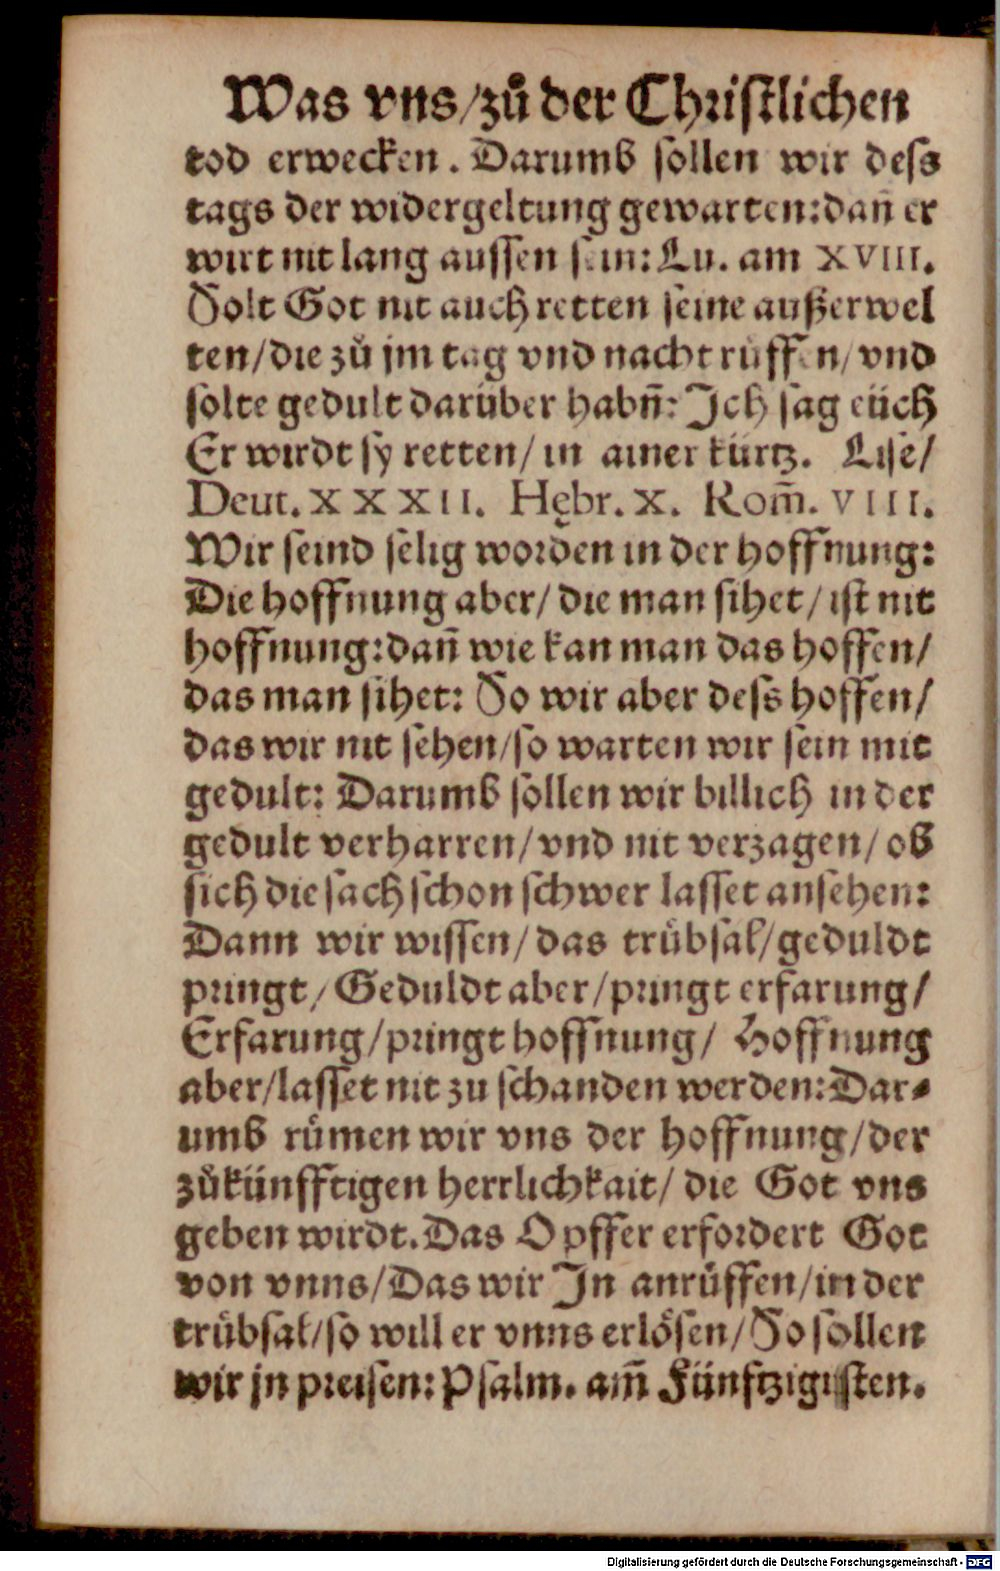 Was vns/zů der Chriſtlichen
tod erwecken. Darumb ſollen wir deſs
tags der widergeltung gewarten:dañ er
wirt nit lang auſſen ſein: Lu. am XVIII.
Solt Got nit auch retten ſeine außerwel
ten/die zů jm tag vnd nacht rüffen/vnd
ſolte gedult darüber habñ: Jch ſag eüch
Er wirdt ſy retten/ in ainer kürtz. Liſe/
Deut. XXXII. Hębr. X. Rom̃. VIII.
Wir ſeind ſelig worden in der hoffnung:
Die hoffnung aber/ die man ſihet/ iſt nit
hoffnung:dañ wie kan man das hoffen/
das man ſihet: So wir aber deſs hoffen/
das wir nit ſehen/ſo warten wir ſein mit
gedult: Darumb ſollen wir billich in der
gedult verharren/vnd nit verzagen/ ob
ſich die ſach ſchon ſchwer laſſet anſehen:
Dann wir wiſſen/ das trübſal/geduldt
pringt/ Geduldt aber/pringt erfarung/
Erfarung/pringt hoffnung/ Hoffnung
aber/laſſet nit zu ſchanden werden:Dar⸗
umb rümen wir vns der hoffnung/der
zůkünfftigen herrlichkait/ die Got vns
geben wirdt. Das Opffer erfordert Got
von vnns/Das wir Jn anrüffen/in der
trübſal/ſo will er vnns erlöſen/So ſollen
wir jn preiſen: Pſalm. am̃ Fünftzigiſten.
Digitalisierung gefördert durch die Deutsche Forschungsgemeinschaft - DFG